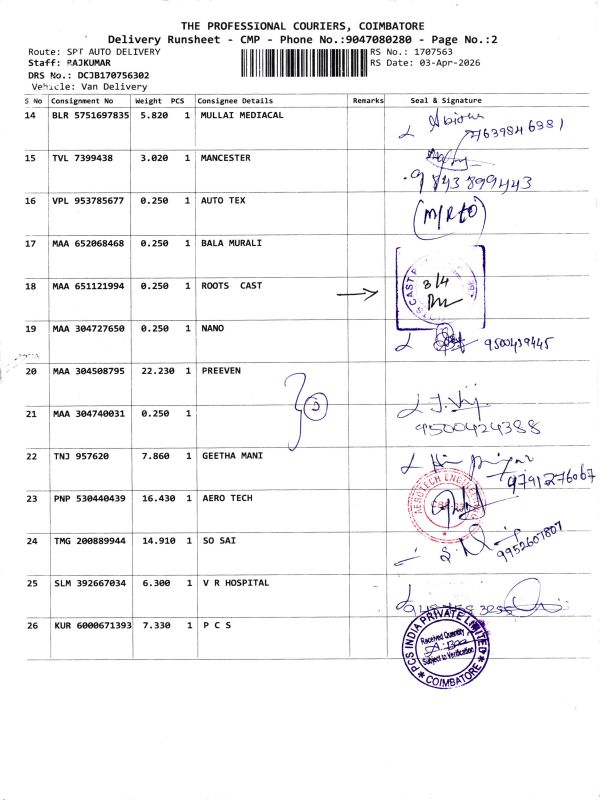 THE PROFESSIONAL COURIERS, COIMBATORE
Delivery Runsheet - CMP - Phone No.:9047080280 - Page No.:2
Route: SPT AUTO DELIVERY
RS No.: 1707563
Staff: RAJKUMAR
RS Date: 03-Apr-2026
DRS No.: DCJB170756302
Vehicle: Van Delivery
S No Consignment No Weight PCS Consignee Details Remarks Seal & Signature
14 BLR 5751697835 5.820 1 MULLAI MEDIACAL
7639846381
15 TVL 7399438 3.020 1 MANCESTER
9843899443
16 VPL 953785677 0.250 1 AUTO TEX
(M/RTO)
17 MAA 652068468 0.250 1 BALA MURALI
18 MAA 651121994 0.250 1 ROOTS CAST
8/4
19 MAA 304727650 0.250 1 NANO
9500439445
20 MAA 304508795 22.230 1 PREEVEN
21 MAA 304740031 0.250 1
9500424388
22 TNJ 957620 7.860 1 GEETHA MANI
9791276067
23 PNP 530440439 16.430 1 AERO TECH
24 TMG 200889944 14.910 1 SO SAI
9952607807
25 SLM 392667034 6.300 1 V R HOSPITAL
26 KUR 6000671393 7.330 1 P C S
PCS INDIA PRIVATE LIMITED
Received Quantity
Subject to Verification
* COIMBATORE *